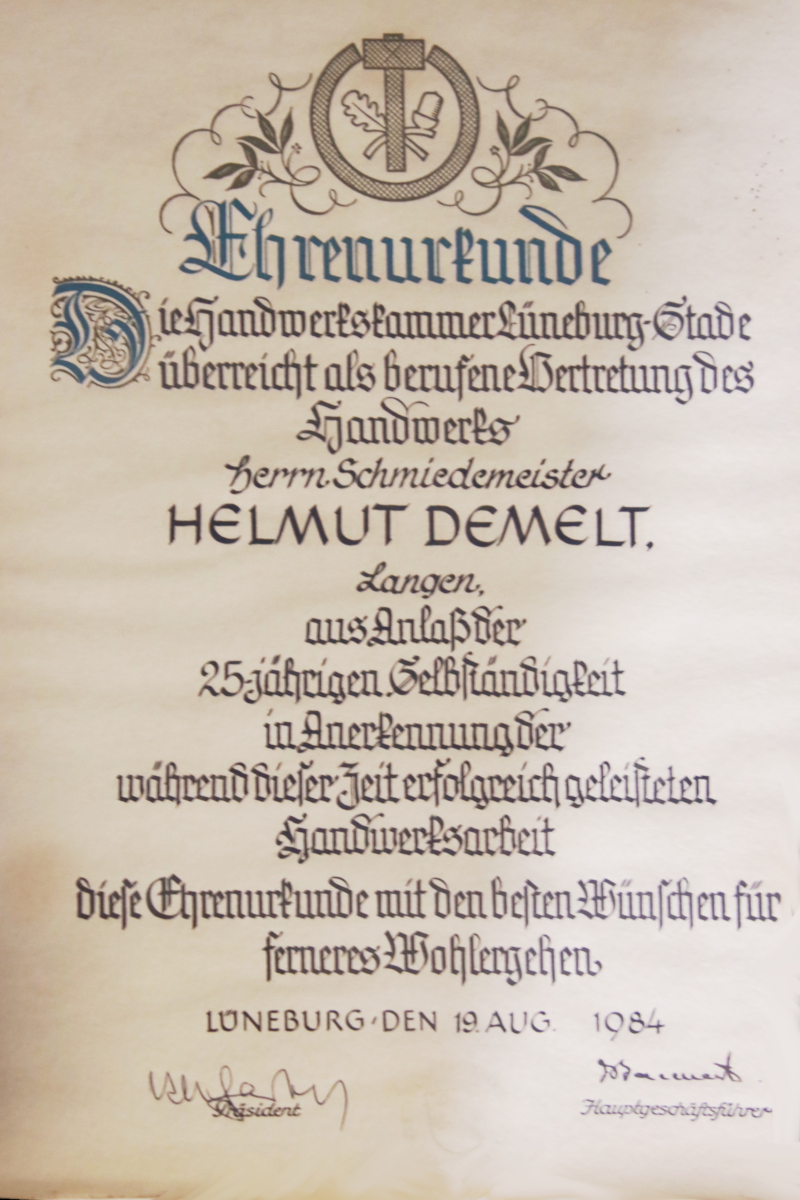 Ehrenurkunde
Die Handwerkskammer Lüneburg-Stade
überreicht als berufene Vertretung des
Handwerks
Herrn Schmiedemeister
HELMUT DEMELT,
Langen,
aus Anlaß der
25-jährigen Selbständigkeit
in Anerkennung der
während dieser Zeit erfolgreich geleisteten
Handwerksarbeit
diese Ehrenurkunde mit den besten Wünschen für
ferneres Wohlergehen.
LÜNEBURG, DEN 19. AUG. 1984
Präsident Hauptgeschäftsführer